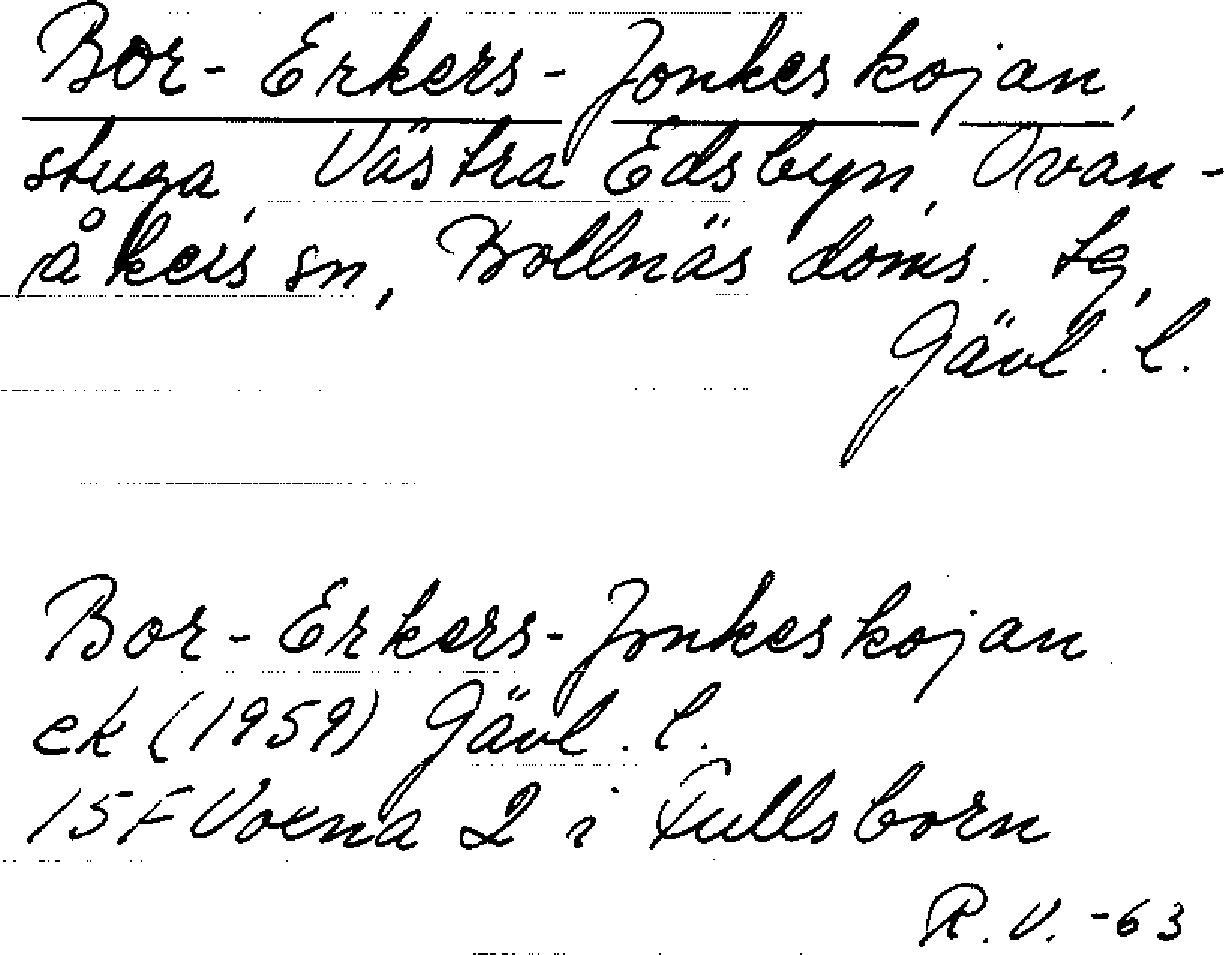 Bor-Erkers-Jonkeskojan,
stuga, Västra Edsbyn, Ovan-
åkers sn, Bollnäs doms. tg,
Gävl. l.
Bor-Erkers-Jonkeskojan
ek (1959) Gävl. l.
15F Voxna 2 i Fullsborn
R.V. -63